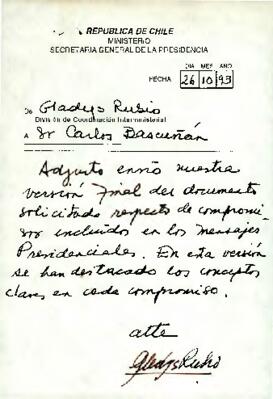 REPUBLICA DE CHILE
MINISTERIO
SECRETARIA GENERAL DE LA PRESIDENCIA
DIA MES AÑO
FECHA 26 10 93
DE Gladys Rubio
División de Coordinación Interministerial
A Sr Carlos Bascuñán
Adjunto envío nuestra
versión final del documento
solicitado respecto de compromi-
sos incluidos en los Mensajes
Presidenciales. En esta versión
se han destacado los conceptos
claves en cada compromiso.
atte
Gladys Rubio